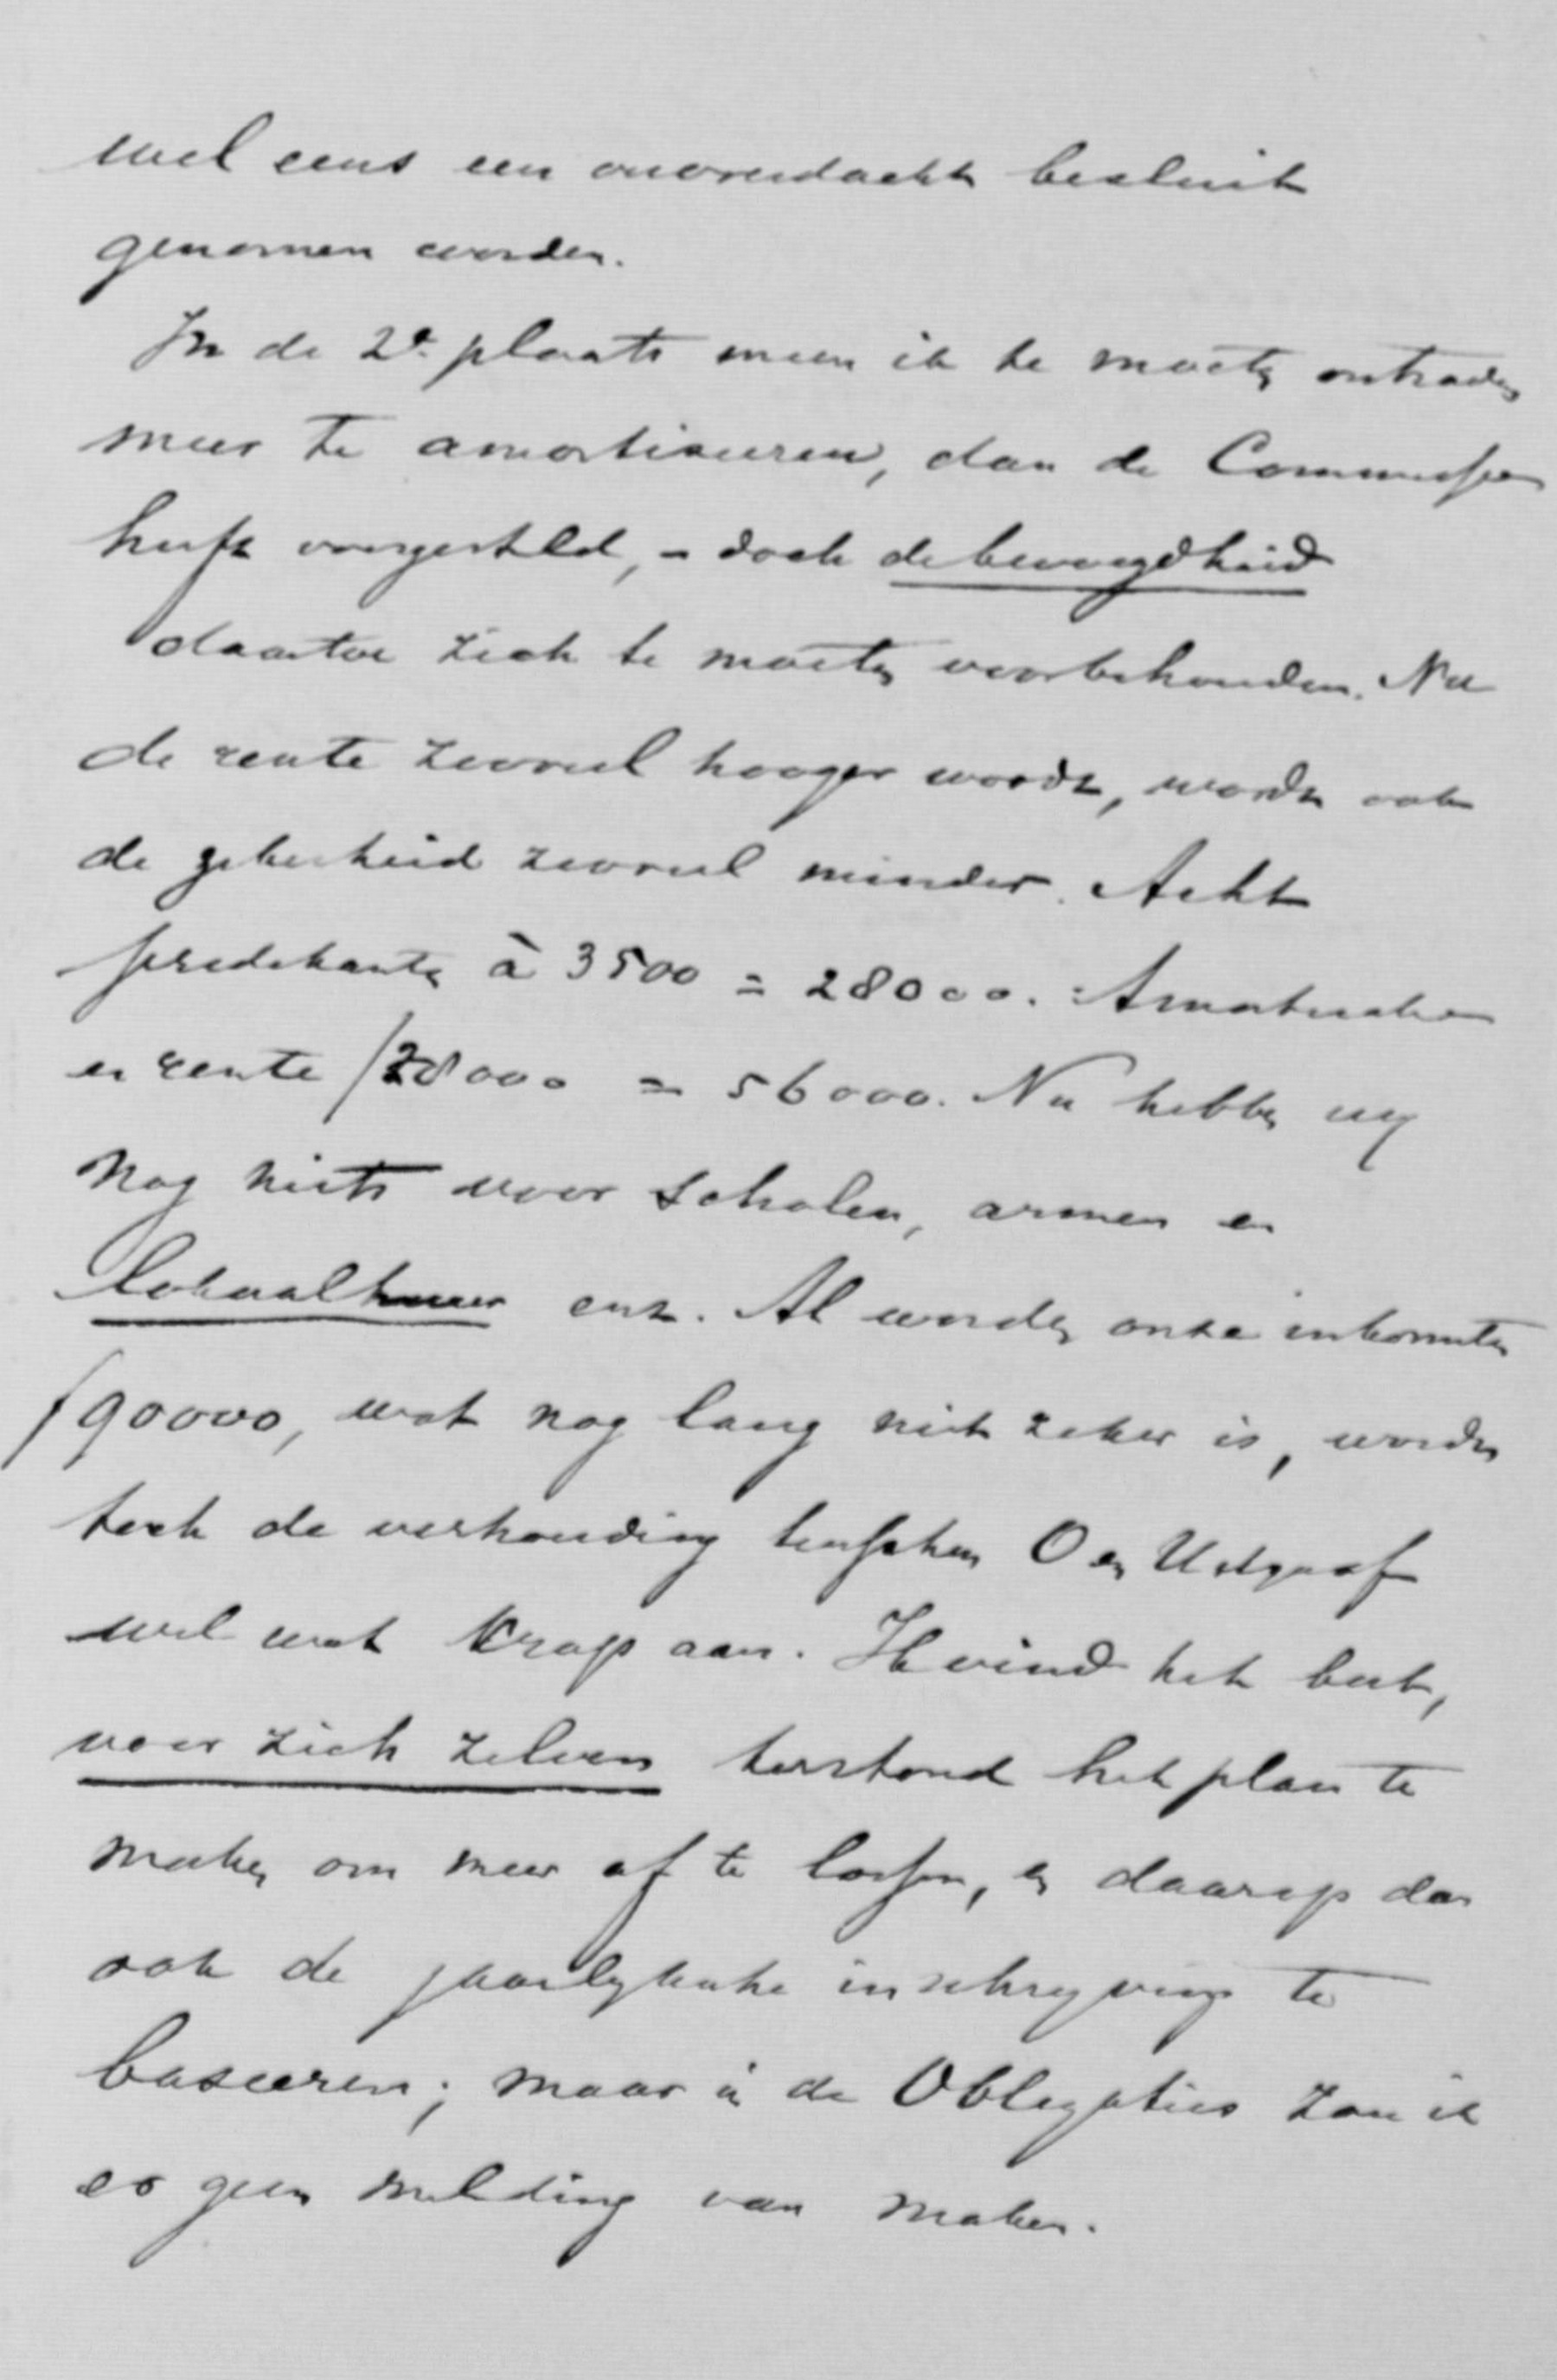 wel eens een onoverdacht besluit
genomen worden.
In de 2e plaats meen ik te moeten ontraden
meer te amortiseeren, dan de Commissie
heeft voorgesteld, – doch de bevoegdheid
daartoe zich te moeten voorbehouden. Nu
de rente zooveel hooger wordt, wordt ook
de zekerheid zooveel minder. Acht
predikanten à 3500 = 28000. Amortisatie
en rente ƒ28000 = 56000. Nu hebben wij
nog niets voor scholen, armen en
lokaalhuur enz. Al worden onze inkomsten
ƒ90000, wat nog lang niet zeker is, wordt
toch de verhouding tusschen O en Uitgaaf
wel wat krap aan. Ik vind het best,
voor zich zelven terstond het plan te
maken om meer af te lossen, en daarop dan
ook de jaarlijksche inschrijving te
baseeren; maar in de Obligaties zou ik
er geen melding van maken.